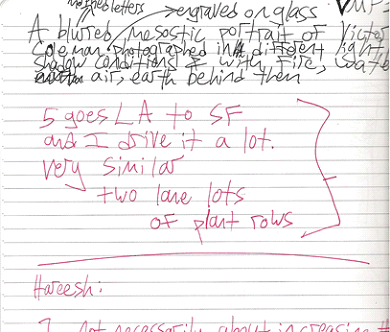 letters engraved on glass
A blured mesostic portrait of Victor
Coleman photographed in different light
shadow conditions & with fire,
air, earth behind them
5 goes LA to SF
and I drive it a lot.
very similar
two lane lots
of plant rows
Hareesh:
not necessarily about increasing